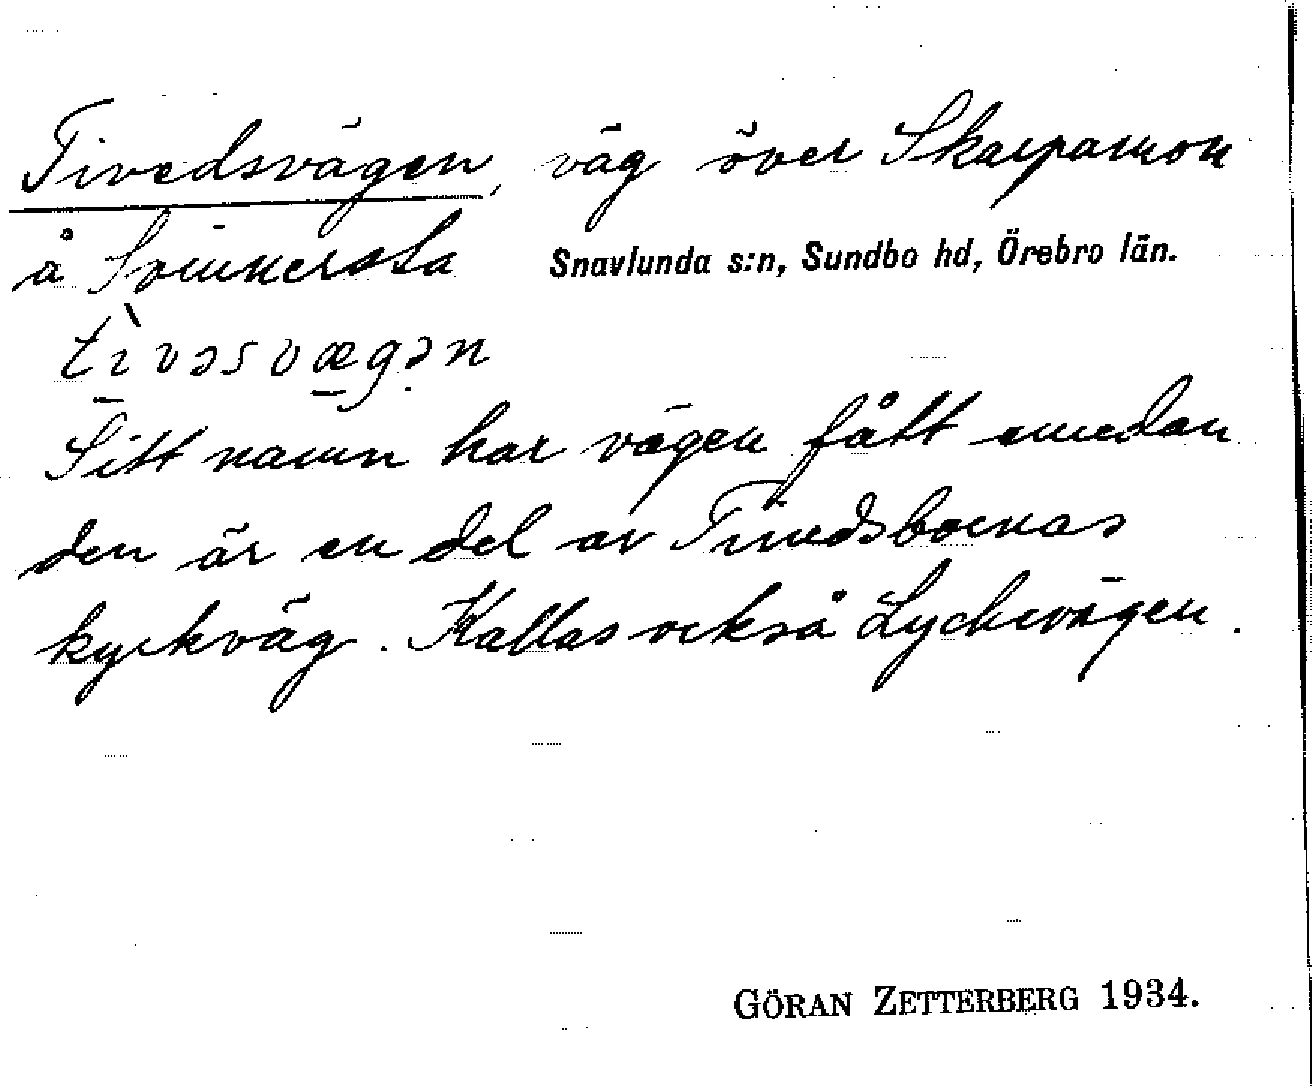 Tivedsvägen, väg över Skarpamon
å Svinnersta Snavlunda s:n, Sundbo hd, Örebro län.
tìvəsvægən
Sitt namn har vägen fått emedan
den är en del av Tivedsboernas
kyrkväg. Kallas också Lyckevägen.
GÖRAN ZETTERBERG 1934.